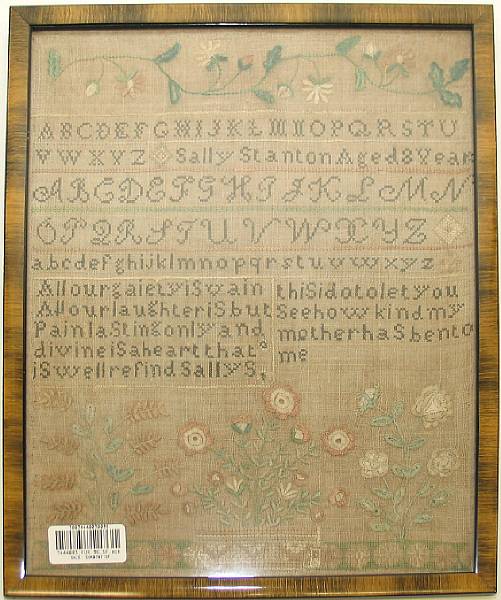 ABCDEFGHIJKLMNOPQRSTU
VWXYZ Sally Stanton Aged 8 Year
ABCDEFGHIJKLMN
OPQRSTUVWXYZ
abcdefghijklmnopqrstuvwxyz
All our gaiety is vain
All our laughter is but
Pain lasting only and
divine is a heart that s
is well refind Sally S,
this i do to let you
See how kind my
mother has ben to
me